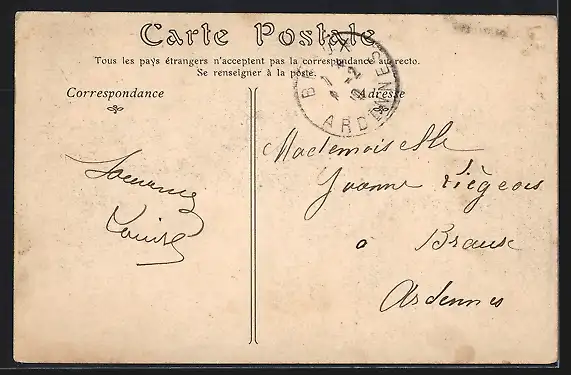 Carte Postale
Tous les pays étrangers n'acceptent pas la correspondance au recto.
Se renseigner à la poste.
Correspondance
Adresse
ARDENNES
Mademoiselle
Jeanne Liégeois
à Braux
Ardennes
Louise